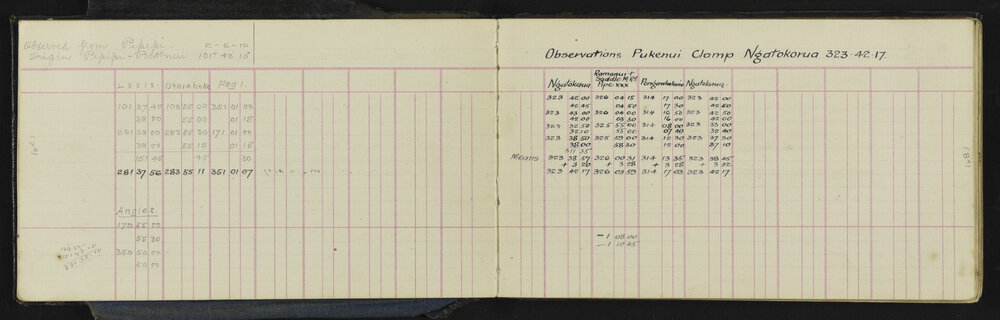 Observed from Pipipi. 2-6-10
Origin Pipipi - Pukenui 101° 43' 10"
LXXIX Otorohaka Peg 1.
101 37 45 103 55 00 351 01 00
38 00 55 00 01 15
281 38 00 283 55 30 171 01 00
38 00 55 15 01 15
151 45 45 30
281 37 56 283 55 11 351 01 07
Angles
179 55 00
55 30
359 50 00
50 00
Observations Pukenui Clamp Ngatokorua 323.42.17.
Ramaqui T
Saddle
Ngatokorua Pipe XXX Ngatokorua
323 42 00 326 04 15 314 17 00 323 42 00
42 45 04 50 17 30 42 50
323 43 00 326 04 00 314 16 50 323 42 50
42 00 03 30 16 00 42 00
323 32 50 325 55 00 314 08 00 323 33 00
32 10 55 00 07 40 32 40
323 38 50 325 59 00 314 12 30 323 37 30
38 00 58 30 12 00 37 10
311 35
Means 323 38 57 326 00 31 314 13 35 323 38 45
+ 3 20 + 3 28 + 3 28 + 3 32
323 42 17 326 03 59 314 17 03 323 42 17
- 1 08 00
- 1 10 45